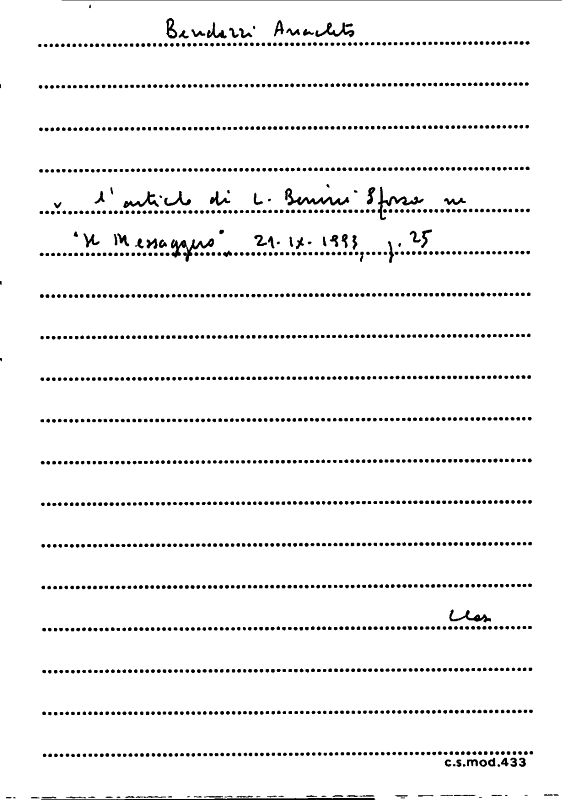 Bendazzi Anacleto
v l'articolo di L. Bonini Sforza ne
"Il Messaggero", 21-IX-1993, p. 25
c.s.mod.433